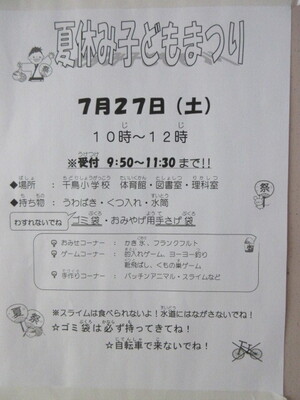 夏休み子どもまつり
7月27日（土）
10時～12時
※受付 9:50～11:30まで!!
◆場所 ： 千鳥小学校 体育館・図書室・理科室
◆持ち物 ： うわばき・くつ入れ・水筒
わすれないでね ゴミ袋・おみやげ用手さげ袋
祭
○ おみせコーナー ： かき氷、フランクフルト
○ ゲームコーナー ： 的入れゲーム、ヨーヨー釣り
靴飛ばし、くもの巣ゲーム
○ 手作りコーナー ： パッチンアニマル・スライムなど
夏祭
※スライムは食べられないよ！水道にはながさないでね！
☆ゴミ袋は必ず持ってきてね！
☆自転車で来ないでね！